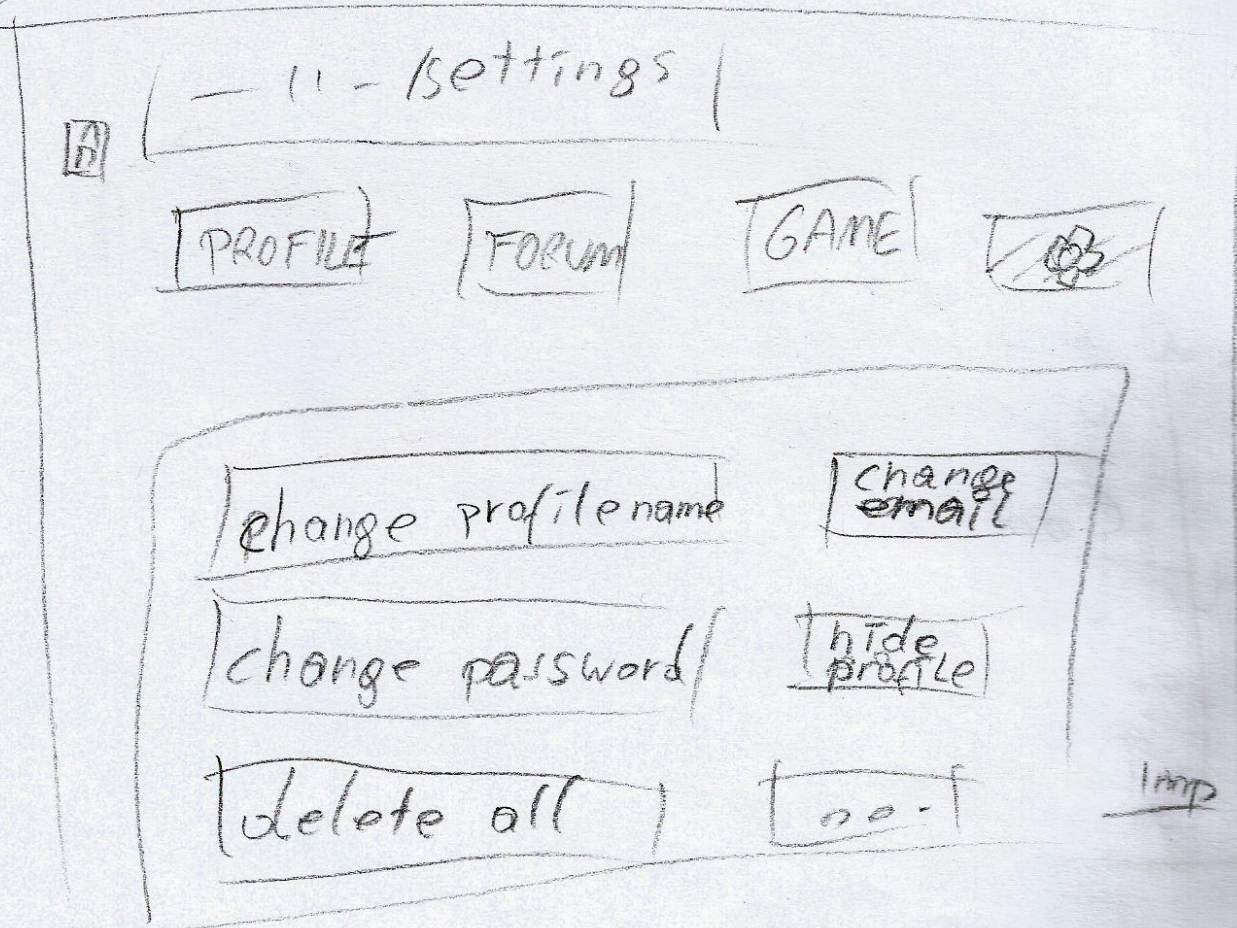 — 11 - /settings
PROFILE FORUM GAME
change profilename
change
email
change password
hide
profile
delete all
Imp